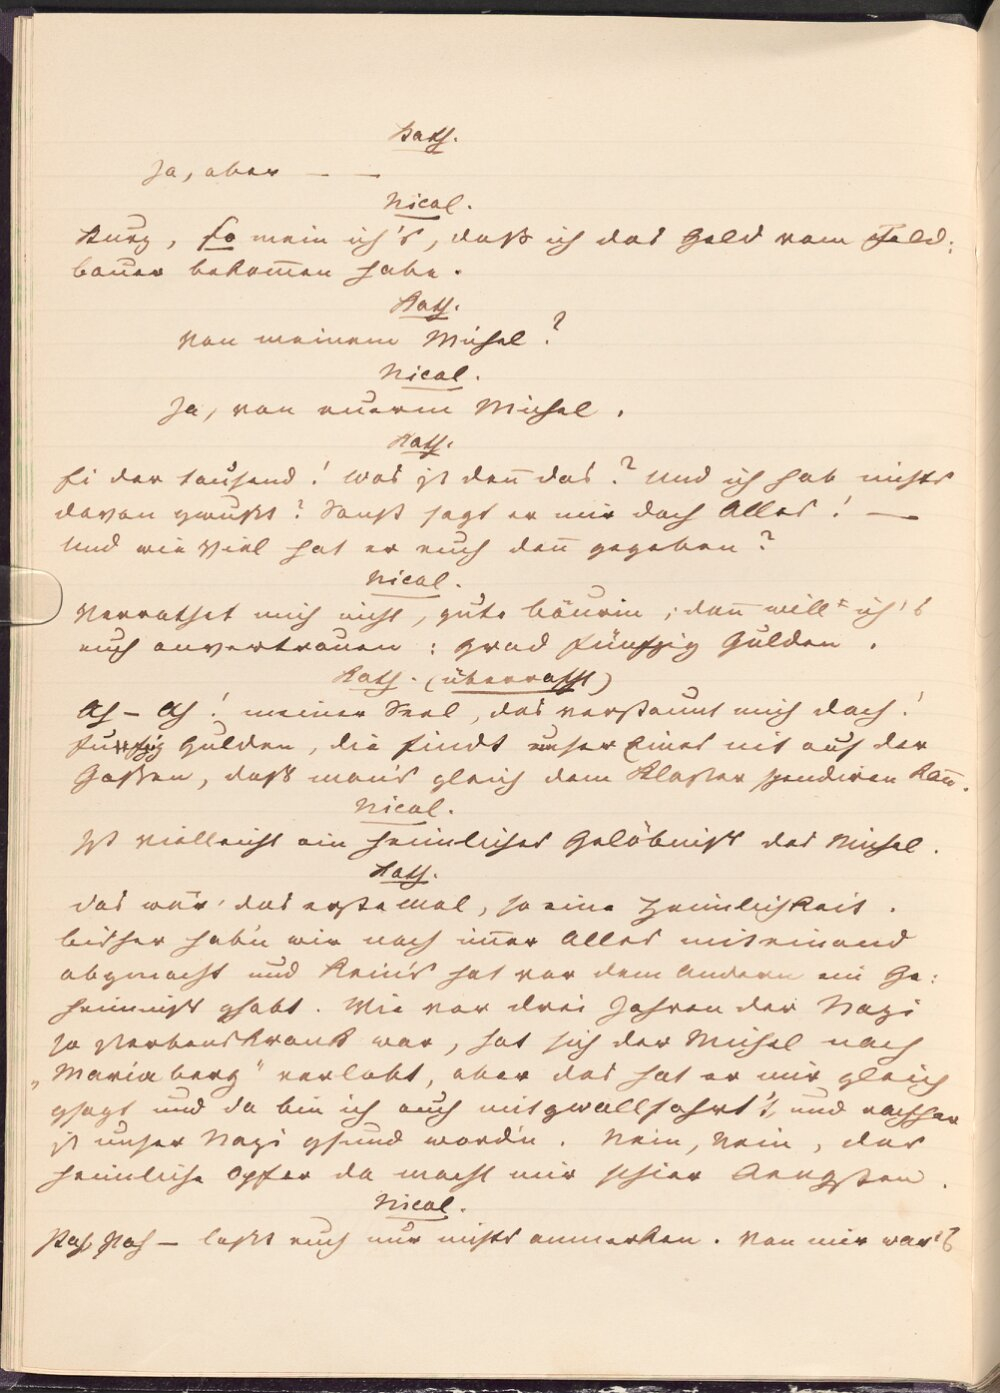 Kath.
Ja, aber — —
Nicol.
Kurz, so mein ich's, daß ich das Geld vom Feld-
bauer bekom̄en habe.
Kath.
Von meinem Michel?
Nicol.
Ja, von euerm Michel.
Kath.
Ei der tausend! Was ist den̄ das? Und ich hab nichts
davon gwußt? Sonst sagt er mir doch Alles! —
Und wie viel hat er euch den̄ gegeben?
Nicol.
Verrathet mich nicht, gute Bäurin; dan̄ will ich's
euch anvertrauen: grad fünfzig Gulden.
Kath. (überrascht)
Ah – Ah! meiner Seel, das erstaunt mich doch!
Fünfzig Gulden, die findt unser Eines nit auf der
Gassen, daß man's gleich dem Kloster spendiren kan̄.
Nicol.
Ist vielleicht ein heimliches Gelöbniß des Michel.
Kath.
Das wär' das erstemal, so eine Heimlichkeit.
Bisher hab'n wir noch im̄er Alles miteinand
abgmacht und kein's hat vor dem Andern ein Ge-
heimniß ghabt. Wie vor drei Jahren der Nazi
so sterbenskrank war, hat sich der Michel nach
„Mariaberg" verlobt, aber das hat er mir gleich
gsagt und da bin ich auch mitgwallfahrt't, und nachher
ist unser Nazi gsund word'n. Nein, nein, das
heimliche Opfer da macht mir schier Aengsten.
Nicol.
Pah, Pah – laßt euch nur nichts anmerken. Von mir war's